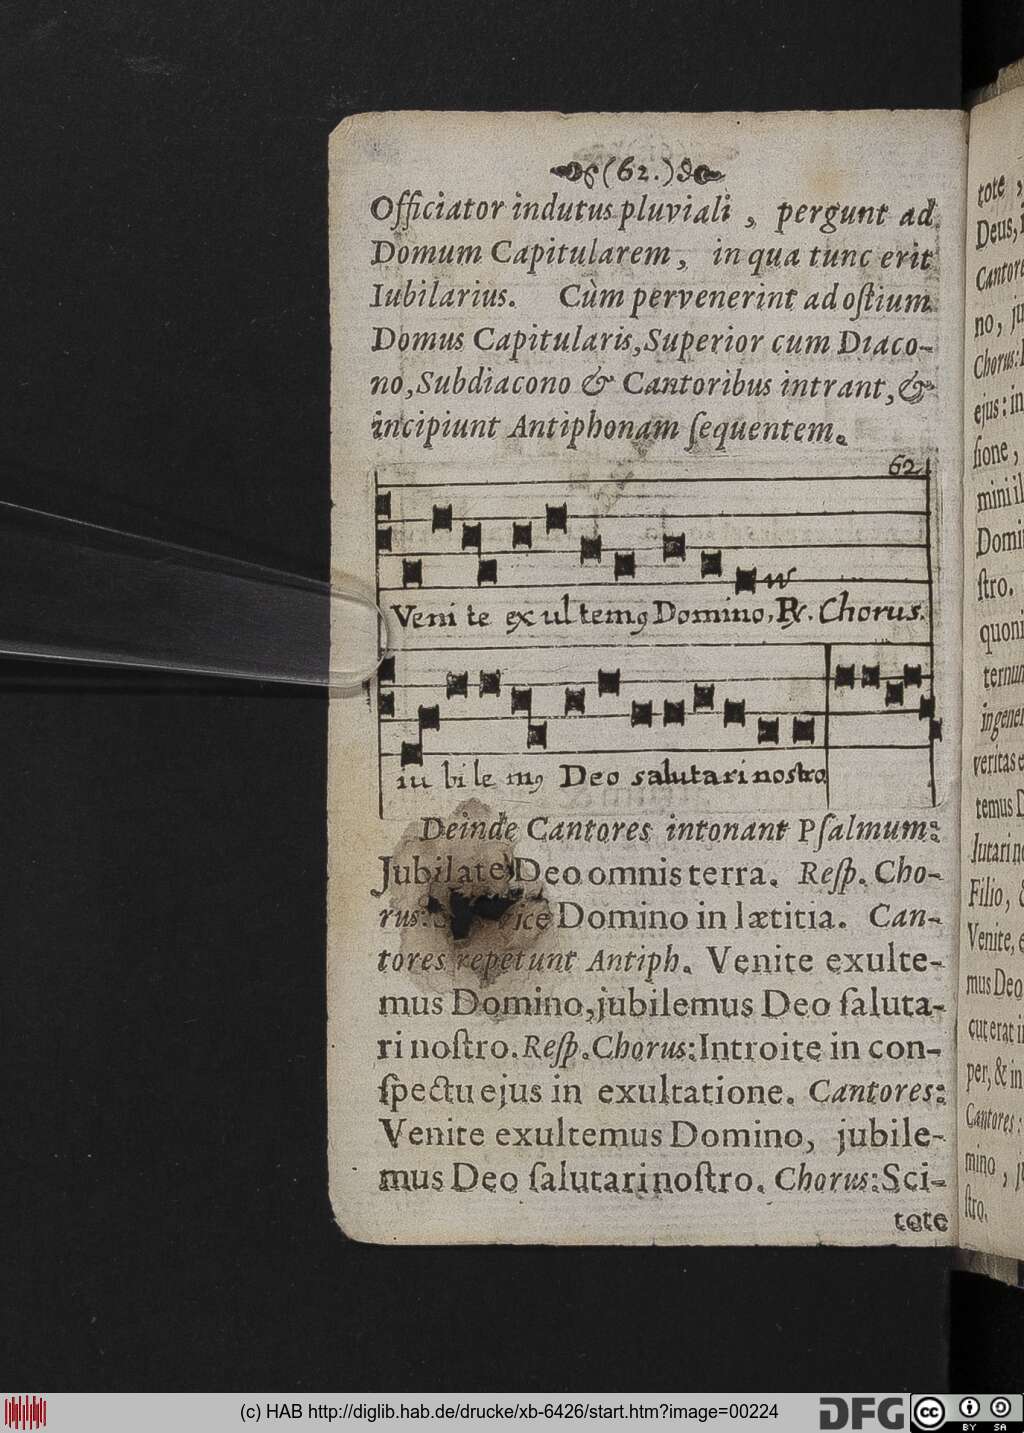 (62.)
Officiator indutus pluviali, pergunt ad
Domum Capitularem, in qua tunc erit
Iubilarius. Cùm pervenerint ad oſtium
Domus Capitularis, Superior cum Diaco-
no, Subdiacono & Cantoribus intrant, &
incipiunt Antiphonam ſequentem.
62
Veni te ex ul temꝰ Domino, ℟. Chorus.
iu bi le mꝰ Deo salutari nostro
Deinde Cantores intonant Pſalmum:
Jubilate Deo omnis terra. Reſp. Cho-
rus: Domino in lætitia. Can-
tores repetunt Antiph. Venite exulte-
mus Domino, jubilemus Deo ſaluta-
ri noſtro. Reſp. Chorus: Introite in con-
ſpectu ejus in exultatione. Cantores:
Venite exultemus Domino, jubile-
mus Deo ſalutari noſtro. Chorus: Sci-
tote
tote,
Deus,
no, ju
Chorus:
ejus: in
ſione,
mini il
ſtro.
quoni
veritas e
temus D
lutari no
Filio, &
Venite, e
mus Deo
cut erat i
per, & in
Cantores:
mino, j
ſtro.
(c) HAB http://diglib.hab.de/drucke/xb-6426/start.htm?image=00224
DFG
cc
BY SA